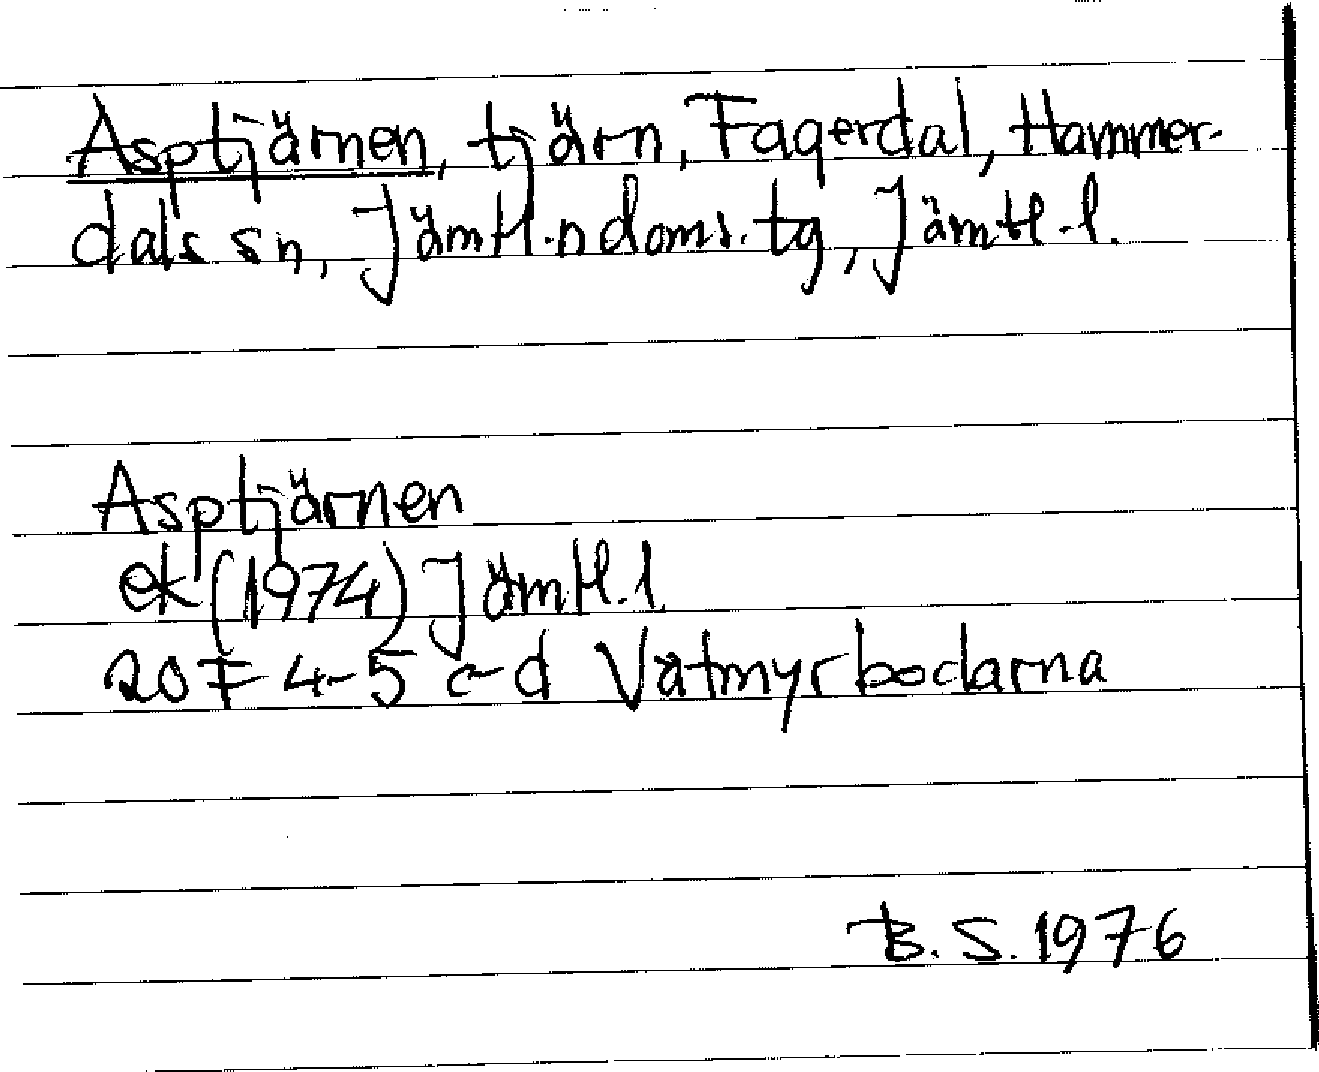 Asptjärnen, tjärn, Fagerdal, Hammer-
dals sn, Jämtl. n doms. tg, Jämtl. l.
Asptjärnen
ek (1974) Jämtl. l
20 F 4-5 c-d Våtmyrbodarna
B. S. 1976